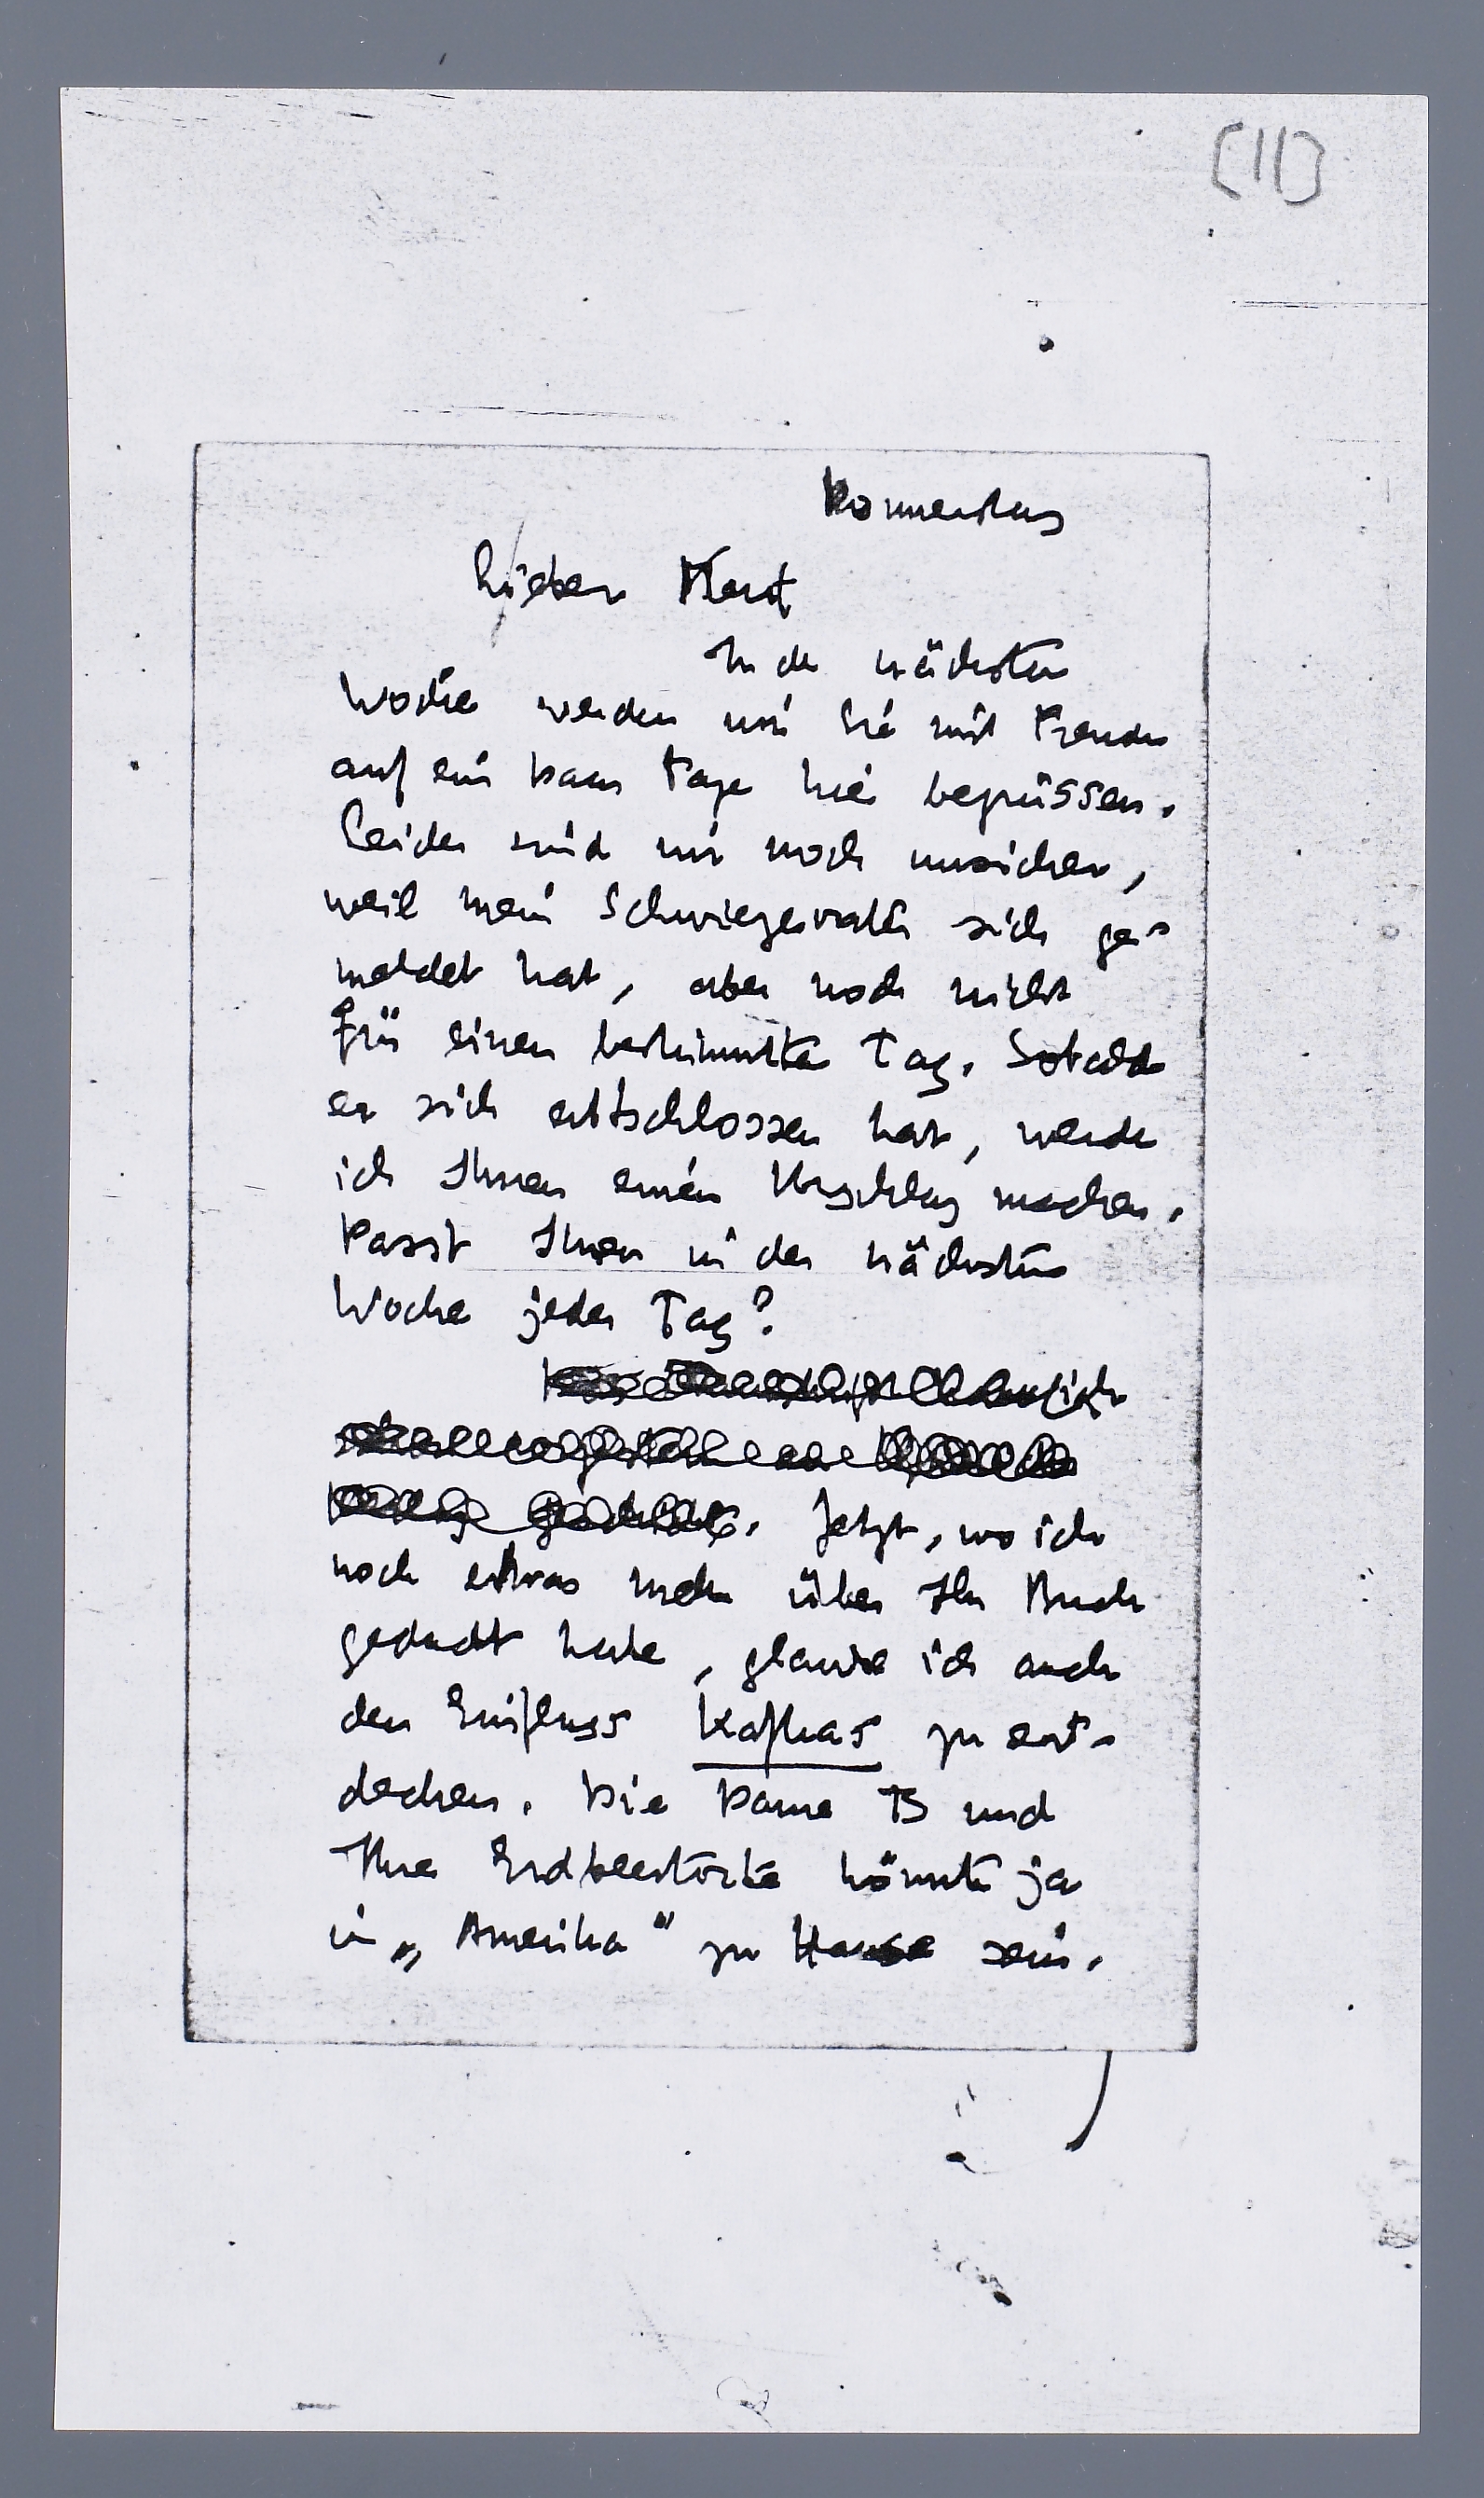 [11]
Donnerstag
Lieber Horst
In der nächsten
Woche werden wir Sie mit Freude
auf ein paar Tage hier begrüssen.
Leider sind wir noch unsicher,
weil mein Schwiegervater sich ge-
meldet hat, aber noch nicht
für einen bestimmten Tag. Sobald
er sich entschlossen hat, werde
ich Ihnen einen Vorschlag machen.
Passt Ihnen in der nächsten
Woche jeder Tag?
Jetzt, wo ich
noch etwas mehr über Ihr Buch
gedacht habe, glaube ich auch
den Einfluss Kafkas zu ent-
decken. Die Dame B und
Ihre Erdbeertorte könnte ja
in „Amerika" zu Hause sein.